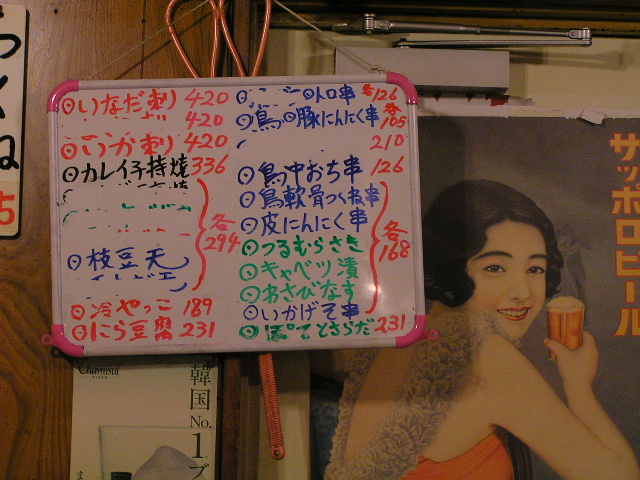 つくね
5
いなだ刺 420
420
いか刺 420
カレイ子持焼 336
各294
枝豆天
冷やっこ 189
にら豆腐 231
串 各126
鳥 豚にんにく串 各105
210
鳥中おち串 126
鳥軟骨つくね串
皮にんにく串
つるむらさき
各168
キャベツ漬
わさびなす
いかげそ串
ぽてとさらだ 231
サッポロビール
Chamisul
韓国No.1ブ